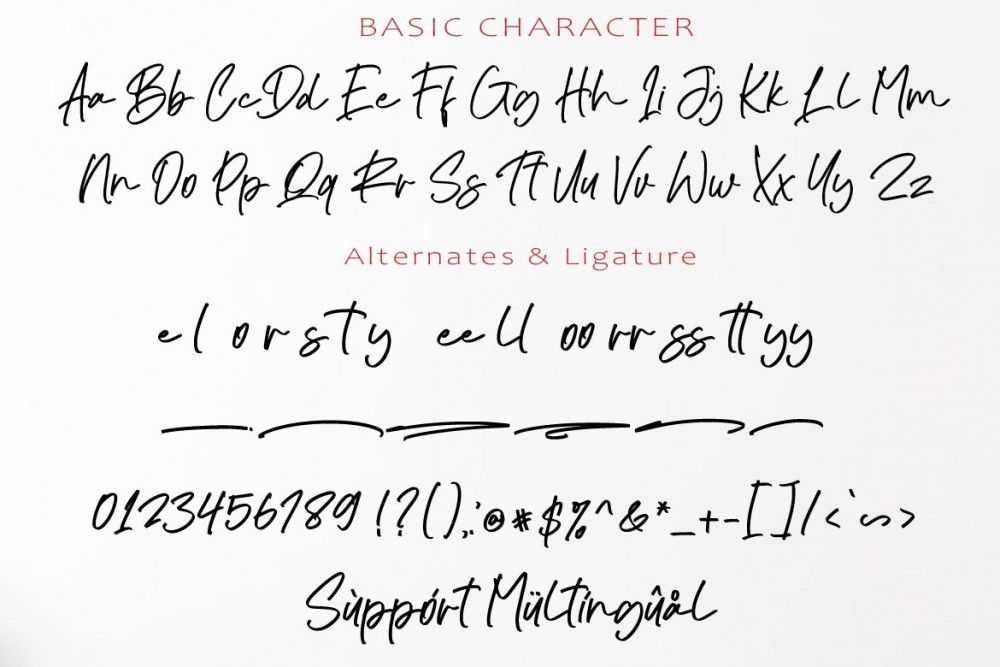 BASIC CHARACTER
Aa Bb Cc Dd Ee Ff Gg Hh Ii Jj Kk Ll Mm
Nn Oo Pp Qq Rr Ss Tt Uu Vv Ww Xx Yy Zz
Alternates & Ligature
e l o r s t y ee ll oo rr ss tt yy
0123456789 !?(),.:;@#$%^&*_+-[]/<`~>
Sùppórt Mültingûål